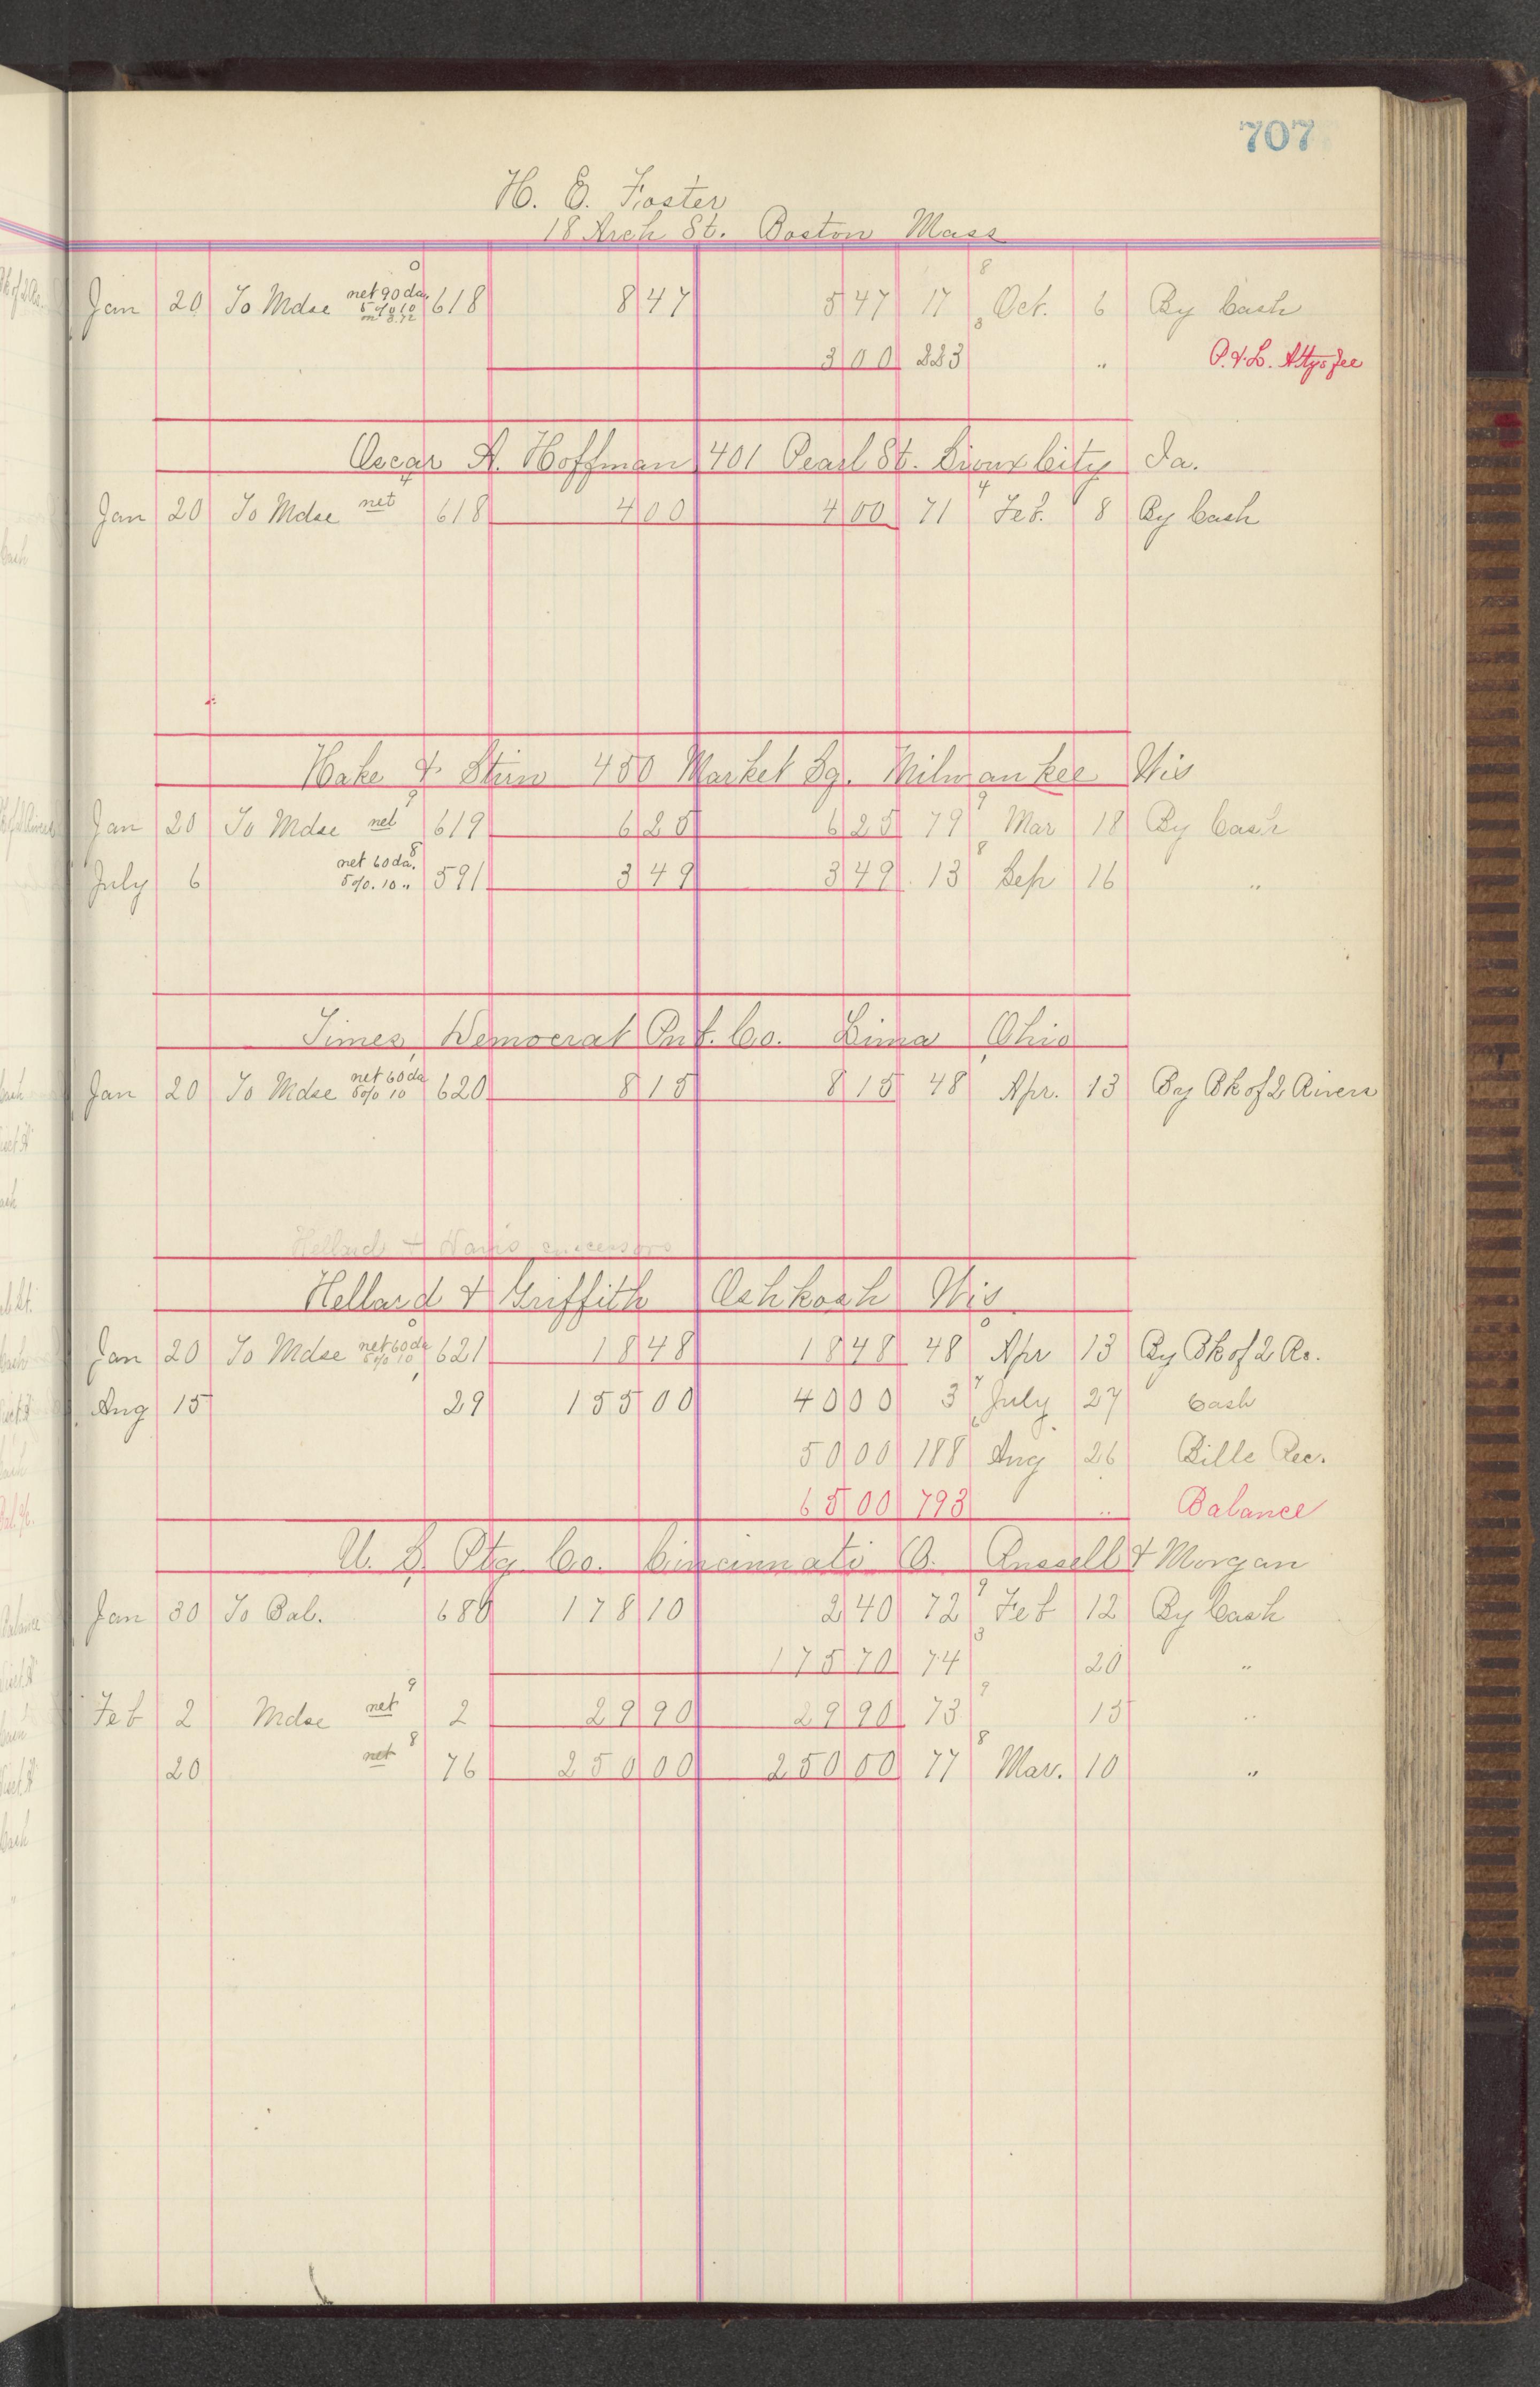 707
H. E. Foster
18 Arch St. Boston Mass
Jan 20 To Mdse net 90 da. 5% 10 618 8 47 5 47 17 Oct. 6 By Cash
3 00 223 " P. & L. Attys fee
Oscar A. Hoffman 401 Pearl St. Sioux City Ia.
Jan 20 To Mdse net 618 4 00 4 00 71 Feb. 8 By Cash
Hake & Stirn 450 Market Sq. Milwaukee Wis
Jan 20 To Mdse net 619 6 25 6 25 79 Mar 18 By Cash
July 6 net 60 da. 5%. 10 " 591 3 49 3 49 13 Sep 16 "
Times Democrat Pub. Co. Lima Ohio
Jan 20 To Mdse net 60 da 5% 10 620 8 15 8 15 48 Apr. 13 By Bk of 2 Rivers
Hellard & Davis successors
Hellard & Griffith Oshkosh Wis
Jan 20 To Mdse net 60 da 5% 10 621 18 48 18 48 48 Apr 13 By Bk of 2 Rs.
Aug 15 29 155 00 40 00 3 July 27 Cash
50 00 188 Aug 26 Bills Rec.
65 00 793 " Balance
U. S. Ptg Co. Cincinnati O. Russell & Morgan
Jan 30 To Bal. 680 178 10 2 40 72 Feb 12 By Cash
175 70 74 20 "
Feb 2 Mdse net 2 29 90 29 90 73 15 "
20 net 76 250 00 250 00 77 Mar. 10 "